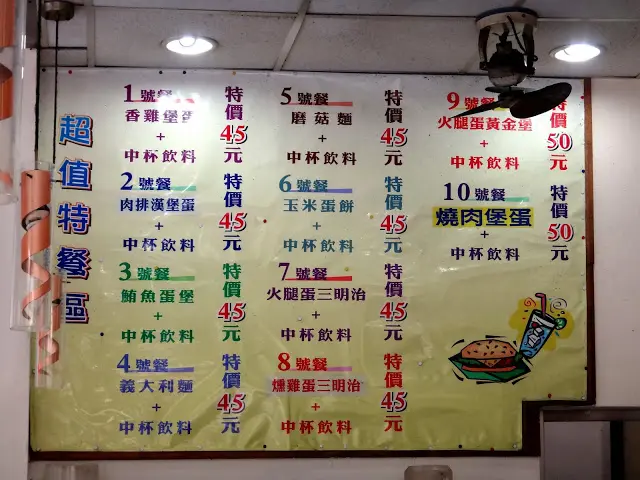 超值特餐區
1號餐
香雞堡蛋
+
中杯飲料
特價45元
2號餐
肉排漢堡蛋
+
中杯飲料
特價45元
3號餐
鮪魚蛋堡
+
中杯飲料
特價45元
4號餐
義大利麵
+
中杯飲料
特價45元
5號餐
磨菇麵
+
中杯飲料
特價45元
6號餐
玉米蛋餅
+
中杯飲料
特價45元
7號餐
火腿蛋三明治
+
中杯飲料
特價45元
8號餐
燻雞蛋三明治
+
中杯飲料
特價45元
9號餐
火腿蛋黃金堡
+
中杯飲料
特價50元
10號餐
燒肉堡蛋
+
中杯飲料
特價50元